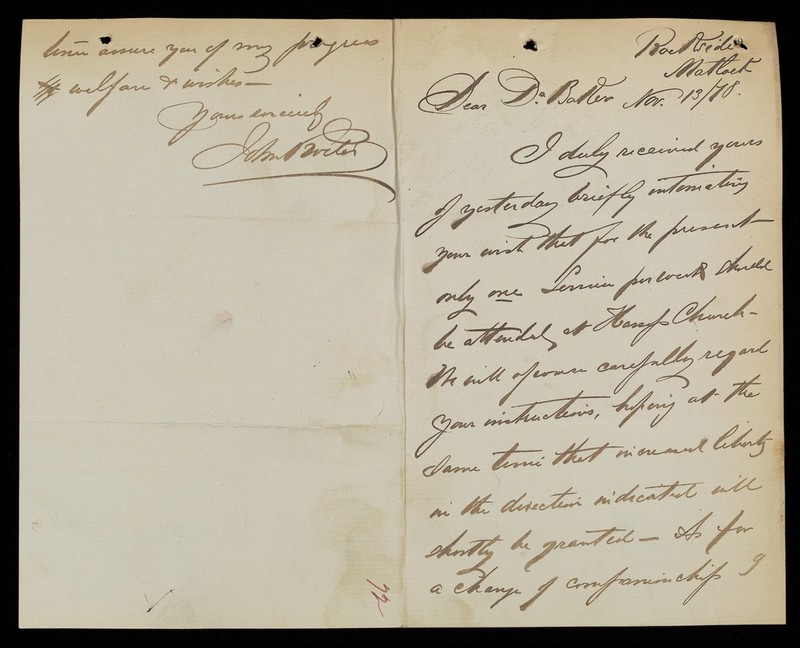 Rockside
Matlock
Nov. 13/78.
Dear Dr. Baker
I duly received yours
of yesterday briefly intimating
your wish that for the present
only one Service per week should
be attended, at Church -
We will of course carefully regard
your instructions, hoping at the
same time that increased liberty
in the direction indicated will
shortly be granted - As for
a change of companionship I
time assure you of my progress
welfare & wishes -
Yours sincerely
John